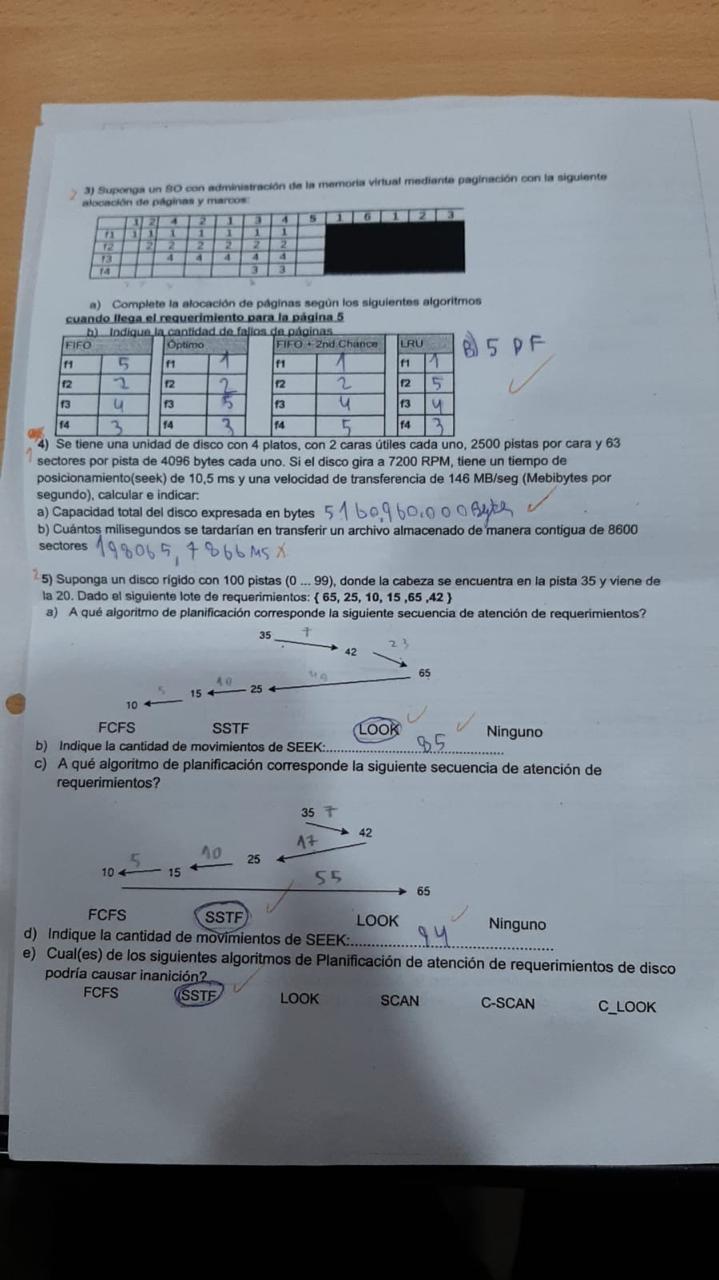 2
3) Suponga un SO con administración de la memoria virtual mediante paginación con la siguiente
alocación de páginas y marcos:
1 2 4 2 1 3 4 5 1 6 1 2 3
f1 1 1 1 1 1 1 1
f2 2 2 2 2 2 2
f3 4 4 4 4 4
f4 3 3
a) Complete la alocación de páginas según los siguientes algoritmos
cuando llega el requerimiento para la página 5
b) Indique la cantidad de fallos de páginas
FIFO Óptimo FIFO + 2nd Chance LRU B) 5 PF
f1 5 f1 1 f1 1 f1 1
f2 2 f2 2 f2 2 f2 5
f3 4 f3 5 f3 4 f3 4
f4 3 f4 3 f4 5 f4 3
4) Se tiene una unidad de disco con 4 platos, con 2 caras útiles cada uno, 2500 pistas por cara y 63
sectores por pista de 4096 bytes cada uno. Si el disco gira a 7200 RPM, tiene un tiempo de
posicionamiento(seek) de 10,5 ms y una velocidad de transferencia de 146 MB/seg (Mebibytes por
segundo), calcular e indicar:
a) Capacidad total del disco expresada en bytes 5160.960.000 Bytes
b) Cuántos milisegundos se tardarían en transferir un archivo almacenado de manera contigua de 8600
sectores 198065,7866 ms X
2
5) Suponga un disco rígido con 100 pistas (0 ... 99), donde la cabeza se encuentra en la pista 35 y viene de
la 20. Dado el siguiente lote de requerimientos: { 65, 25, 10, 15 ,65 ,42 }
a) A qué algoritmo de planificación corresponde la siguiente secuencia de atención de requerimientos?
35 7 42 23
65
40
25
10
15
5
10
FCFS SSTF LOOK Ninguno
b) Indique la cantidad de movimientos de SEEK:........ 85
c) A qué algoritmo de planificación corresponde la siguiente secuencia de atención de
requerimientos?
35 7
42
17
25
10
15
5
10
55
65
FCFS SSTF LOOK Ninguno
d) Indique la cantidad de movimientos de SEEK:........ 94
e) Cual(es) de los siguientes algoritmos de Planificación de atención de requerimientos de disco
podría causar inanición?
FCFS SSTF LOOK SCAN C-SCAN C_LOOK